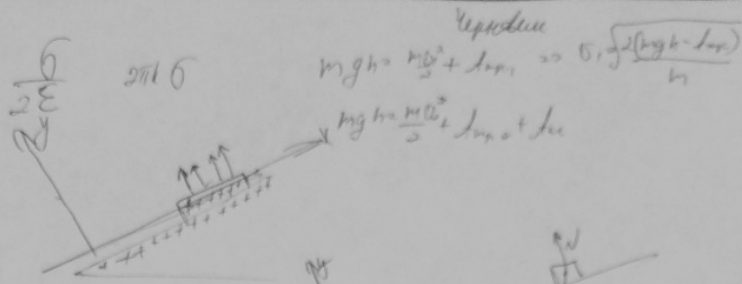 Черновик
σ/2ε 2πkσ
mgh = mv²/2 + Aтр₁ => v₁ = √(2(mgh - Aтр₁)/m)
mgh = mv²/2 + Aтр₂ +
y
x
N
y